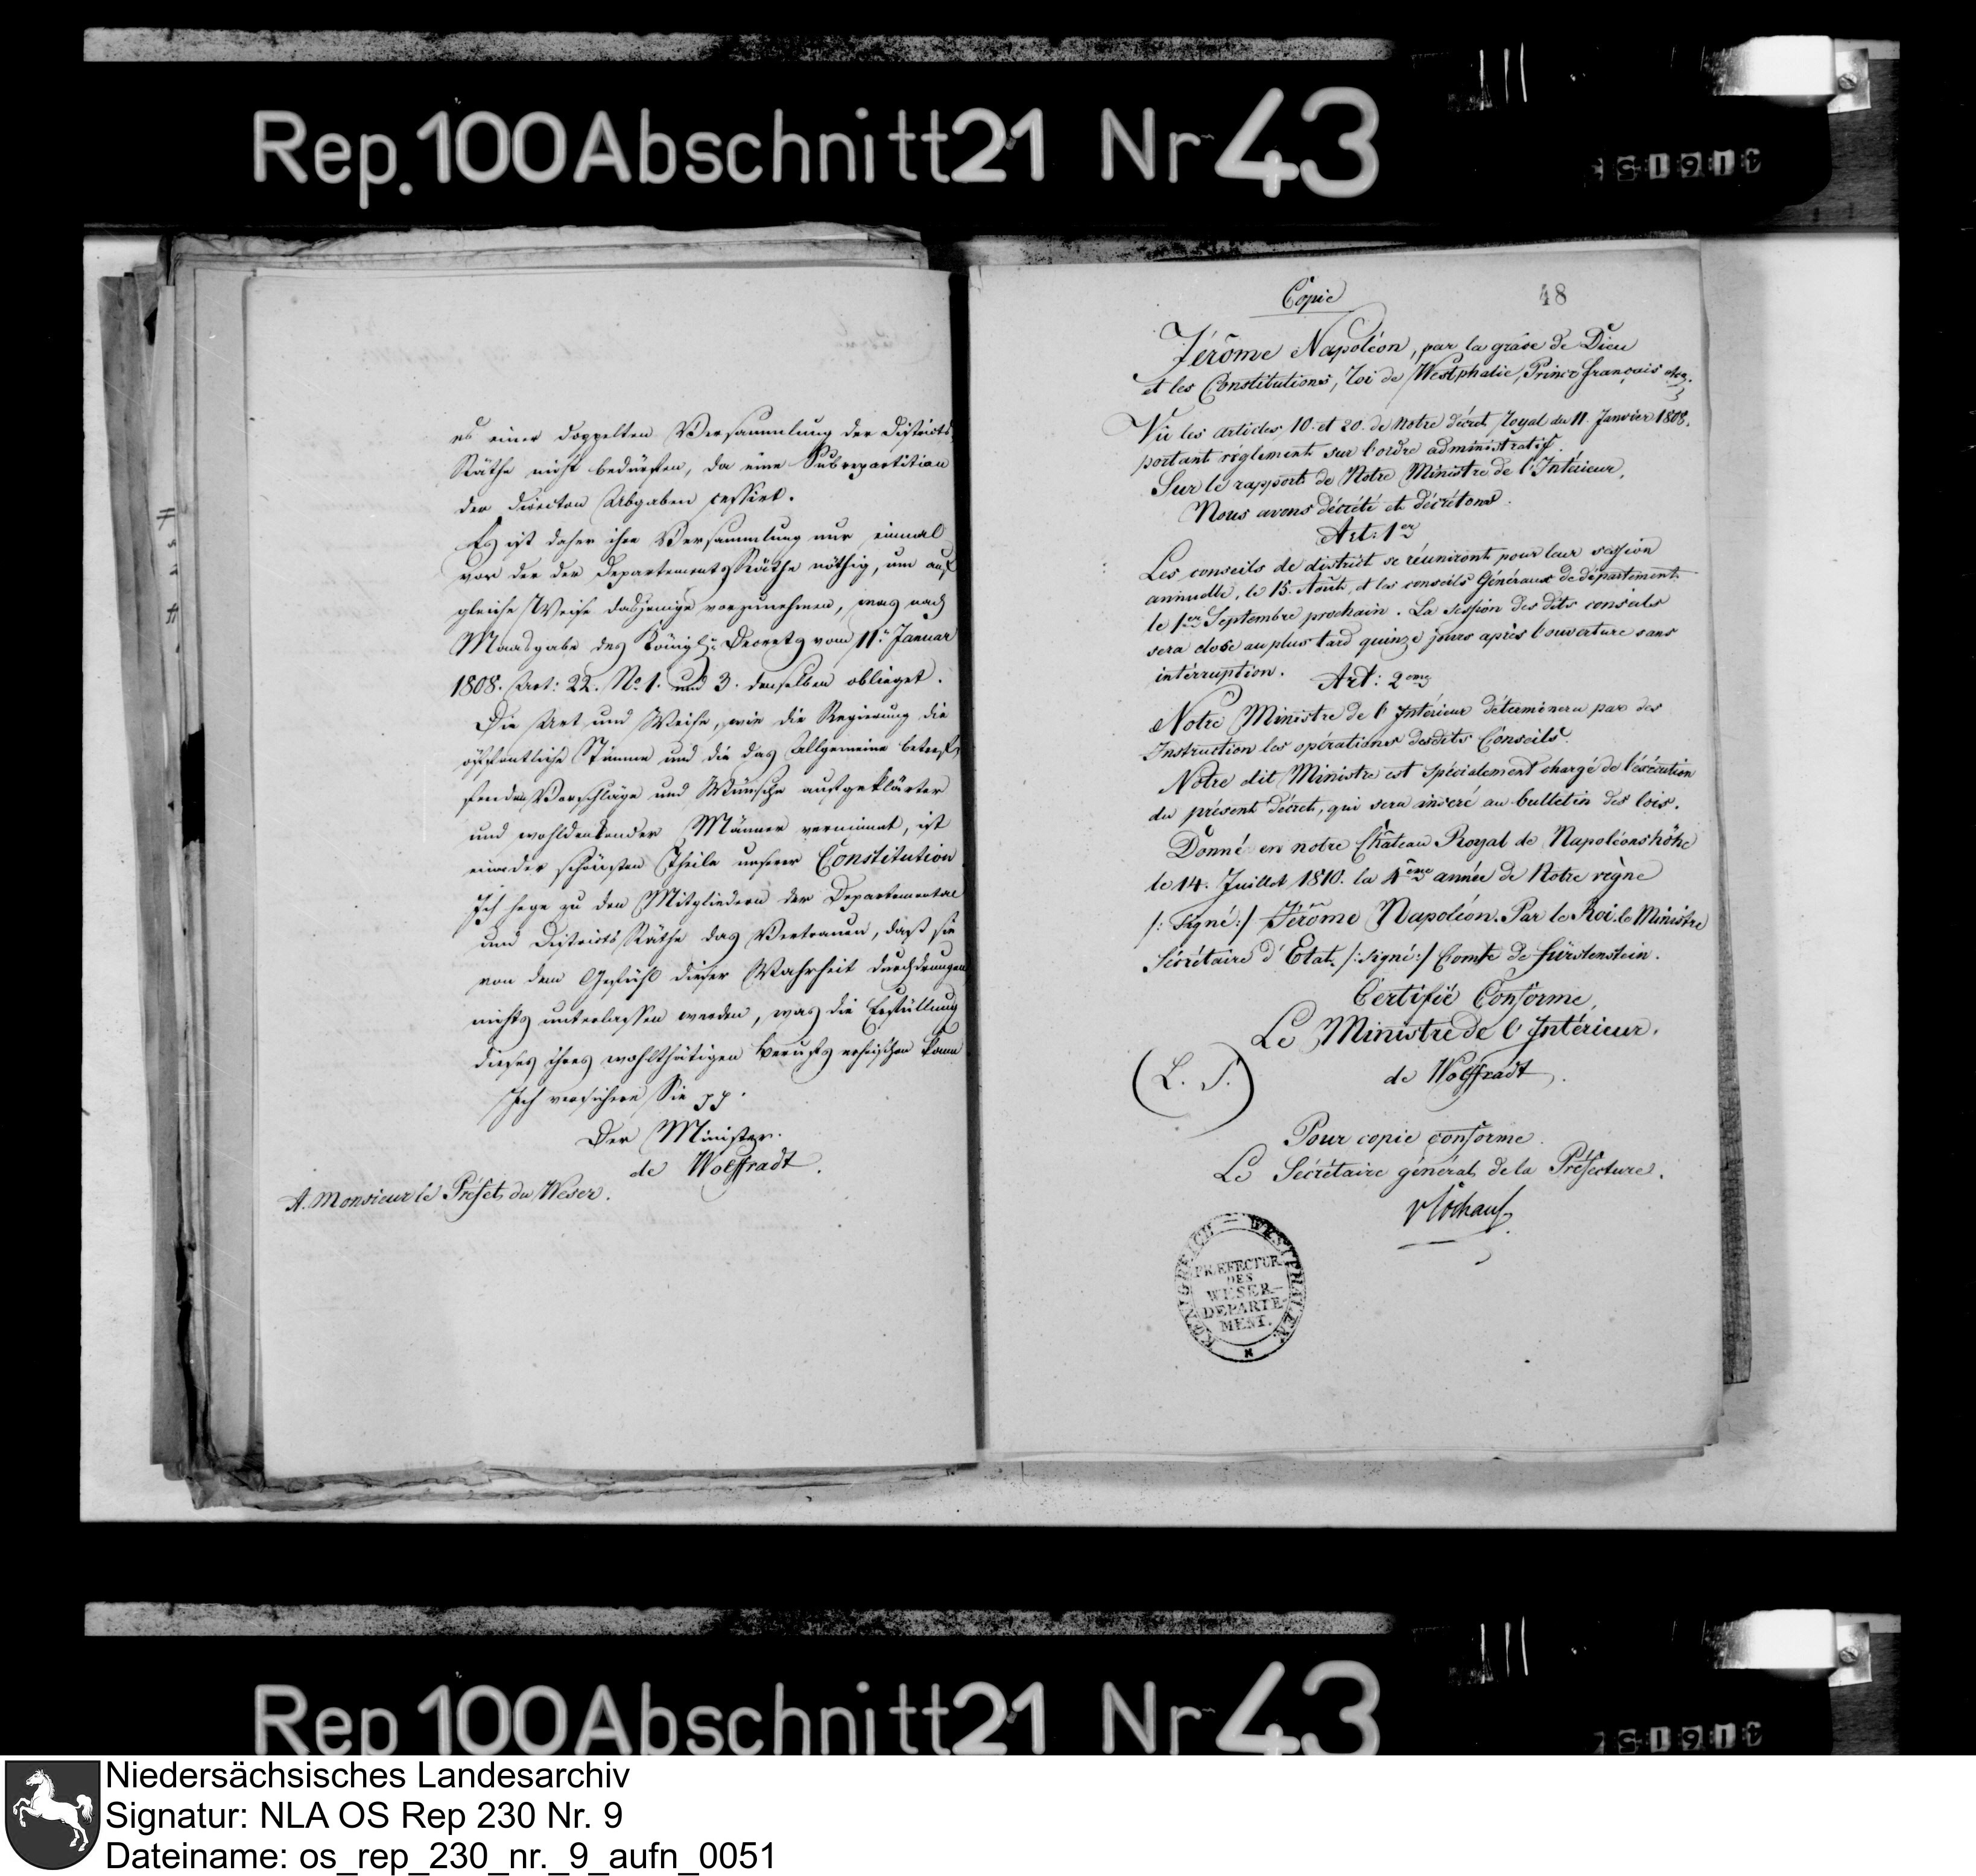 Rep. 100 Abschnitt 21 Nr 43
es einer doppelten Versammlung der Districts
Räthe nicht bedürfen, da eine Subrepartition
der directen Abgaben cessirt.
Es ist daher ihre Versammlung nur einmal
vor der der Departements Räthe nöthig, um auf
gleiche Weise dasjenige vorzunehmen, was nach
Maasgabe des Königl: Decrets vom 11. Januar
1808. Art: 22. No 1. und 3. denselben oblieget.
Die Art und Weise, wie die Regierung die
öffentliche Stimme und die das Allgemeine betref-
fenden Vorschläge und Wünsche aufgeklärter
und wohldenkender Männer vernimmt, ist
einer der schönsten Theile unserer Constitution
Ich hege zu den Mitgliedern der Departemental
und Districts Räthe das Vertrauen, daß sie
von dem Gefühl dieser Wahrheit durchdrungen
nichts unterlassen werden, was die Erfüllung
dieses ihres wohlthätigen Berufs erheischen kann
Ich versichere Sie pp.
Der Minister.
de Wolffradt.
A. Monsieur le Préfet du Weser.
Copie
48
Jérôme Napoléon, par la grâce de Dieu
et les Constitutions, Roi de Westphalie, Prince français etc.
Vu les articles 10. et 20. de Notre décret Royal du 11. Janvier 1808.
portant réglement sur l'ordre administratif.
Sur le rapport de Notre Ministre de l'Intérieur,
Nous avons décrété et décrétons.
Art: 1er
Les conseils de district se réuniront pour leur session
annuelle, le 15. Août, et les conseils Généraux de département
le 1er Septembre prochain. La session des dits conseils
sera close au plus tard quinze jours après l'ouverture sans
intérruption.
Art: 2eme
Notre Ministre de l'Intérieur déterminera par des
Instruction les opérations desdits Conseils.
Notre dit Ministre est spécialement chargé de l'éxécution
du présent décret, qui sera inseré au bulletin des lois.
Donné en notre Château Royal de Napoléonshöhe
le 14. Juillet 1810. la 4ême année de Notre règne
/: Signé :/ Jérôme Napoléon. Par le Roi. le Ministre
Sécrétaire d'Etat. /: signé :/ Comte de fürstenstein.
Certifié Conforme,
Le Ministre de l'Intérieur.
(L. S.)
de Wolffradt.
Pour copie conforme.
Le Sécrétaire général de la Préfecture.
KÖNIGREICH = WESTPHALEN
PRÆFECTUR
DES
WESER-
DEPARTE-
MENT.
Rep 100 Abschnitt 21 Nr 43
Niedersächsisches Landesarchiv
Signatur: NLA OS Rep 230 Nr. 9
Dateiname: os_rep_230_nr._9_aufn_0051